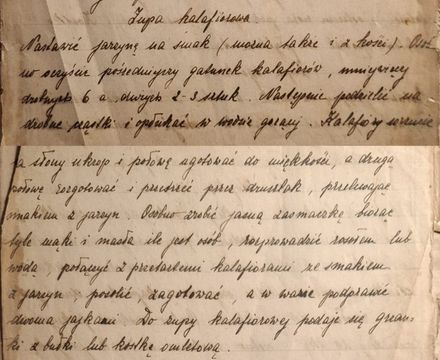 Zupa kalafiorowa
Nastawić jarzynę na smak (można także i z kości). Osob
no oczyścić pośredniejszy gatunek kalafiorów, mniejszej
drobnych 6 a dużych 2-3 sztuk. Następnie podzielić na
drobne cząstki i opłukać w wodzie gorącej. Kalafiory wrzucić
na słony ukrop i połowę ugotować do miękkości, a drugą
połowę rozgotować i przetrzeć przez druszlak, przelewając
smakiem z jarzyn. Osobno zrobić jasną zasmażkę biorąc
tyle mąki i masła ile jest osób, rozprowadzić rosołem lub
wodą, połączyć z przetartemi kalafiorami ze smakiem
z jarzyn, posolić, zagotować, a w wazie podprawić
dwoma jajkami. Do zupy kalafiorowej podaje się grzan-
ki z bułki lub kostkę omletową.